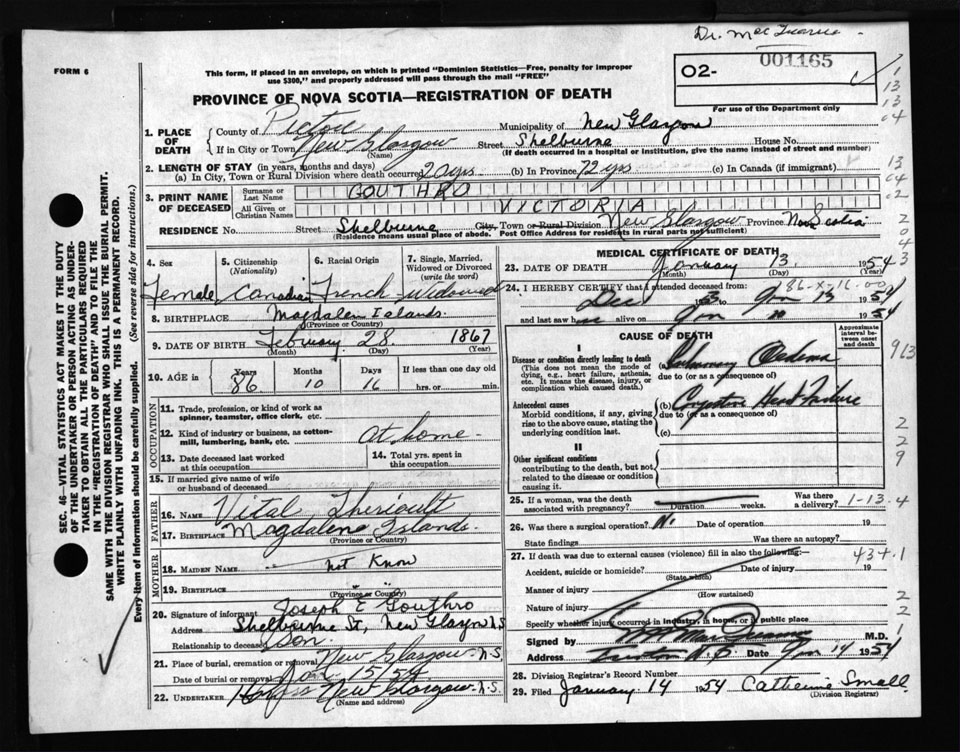 Dr. Mac
001165
02-
For use of the Department only
FORM 6
This form, if placed in an envelope, on which is printed "Dominion Statistics—Free, penalty for improper
use $300," and properly addressed will pass through the mail "FREE"
PROVINCE OF NOVA SCOTIA—REGISTRATION OF DEATH
1. PLACE OF DEATH { County of Pictou Municipality of New Glasgow
If in City or Town New Glasgow (Name) Street Shelburne House No.
(If death occurred in a hospital or institution, give the name instead of street and number)
2. LENGTH OF STAY (in years, months and days)
(a) In City, Town or Rural Division where death occurred 20 yrs (b) In Province 72 yrs (c) In Canada (if immigrant)
3. PRINT NAME OF DECEASED { Surname or Last Name GOUTHRO
All Given or Christian Names VICTORIA
RESIDENCE No. Street Shelburne City, Town or Rural Division New Glasgow Province Nova Scotia
(Residence means usual place of abode. Post Office Address for residents in rural parts not sufficient)
4. Sex 5. Citizenship (Nationality) 6. Racial Origin 7. Single, Married, Widowed or Divorced (write the word)
Female Canadian French Widowed
8. BIRTHPLACE Magdalen Islands.
(Province or Country)
9. DATE OF BIRTH February 28 1867
(Month) (Day) (Year)
10. AGE in Years Months Days If less than one day old
86 10 16 hrs. or min.
OCCUPATION
11. Trade, profession, or kind of work as
spinner, teamster, office clerk, etc.
12. Kind of industry or business, as cotton-
mill, lumbering, bank, etc. At home
13. Date deceased last worked
at this occupation
14. Total yrs. spent in
this occupation
15. If married give name of wife
or husband of deceased
FATHER
16. NAME Vital Theriault
17. BIRTHPLACE Magdalene Islands.
(Province or Country)
MOTHER
18. MAIDEN NAME not Know
19. BIRTHPLACE " "
(Province or Country)
20. Signature of informant Joseph E Gouthro
Address Shelbourne St, New Glasgow N.S
Relationship to deceased Son
21. Place of burial, cremation or removal New Glasgow N.S
Date of burial or removal Jan 15/54
22. UNDERTAKER New Glasgow N.S.
(Name and address)
MEDICAL CERTIFICATE OF DEATH
23. DATE OF DEATH January 13. 1954
(Month) (Day)
86-x-16-00
24. I HEREBY CERTIFY that I attended deceased from:
Dec 1953 to Jan 13 1954
and last saw h alive on Jan 10 1954
CAUSE OF DEATH
Approximate interval between onset and death
I
Disease or condition directly leading to death
(This does not mean the mode of
dying, e.g., heart failure, asthenia,
etc. It means the disease, injury, or
complication which caused death.)
(a) Pulmonary Oedema
due to (or as a consequence of)
Antecedent causes
Morbid conditions, if any, giving
rise to the above cause, stating the
underlying condition last.
(b) Congestive Heart Failure
due to (or as a consequence of)
(c)
II
Other significant conditions
contributing to the death, but not
related to the disease or condition
causing it.
25. If a woman, was the death
associated with pregnancy? Duration weeks. Was there a delivery?
1-13-4
26. Was there a surgical operation? N. Date of operation 19
State findings Was there an autopsy?
27. If death was due to external causes (violence) fill in also the following:—
434.1
Accident, suicide or homicide? (State which) Date of injury 19
Manner of injury
(How sustained)
Nature of injury
Specify whether injury occurred in industry, in home, or in public place
Signed by M.D.
Address Date Jan 14 1954
28. Division Registrar's Record Number
29. Filed January 14 1954 Catherine Small.
(Division Registrar)
SEC. 46—VITAL STATISTICS ACT MAKES IT THE DUTY
OF THE UNDERTAKER OR PERSON ACTING AS UNDER-
TAKER TO OBTAIN ALL THE PARTICULARS REQUIRED
IN THE "REGISTRATION OF DEATH" AND TO FILE THE
SAME WITH THE DIVISION REGISTRAR WHO SHALL ISSUE THE BURIAL PERMIT.
WRITE PLAINLY WITH UNFADING INK. THIS IS A PERMANENT RECORD.
Every item of Information should be carefully supplied. (See reverse side for instructions.)